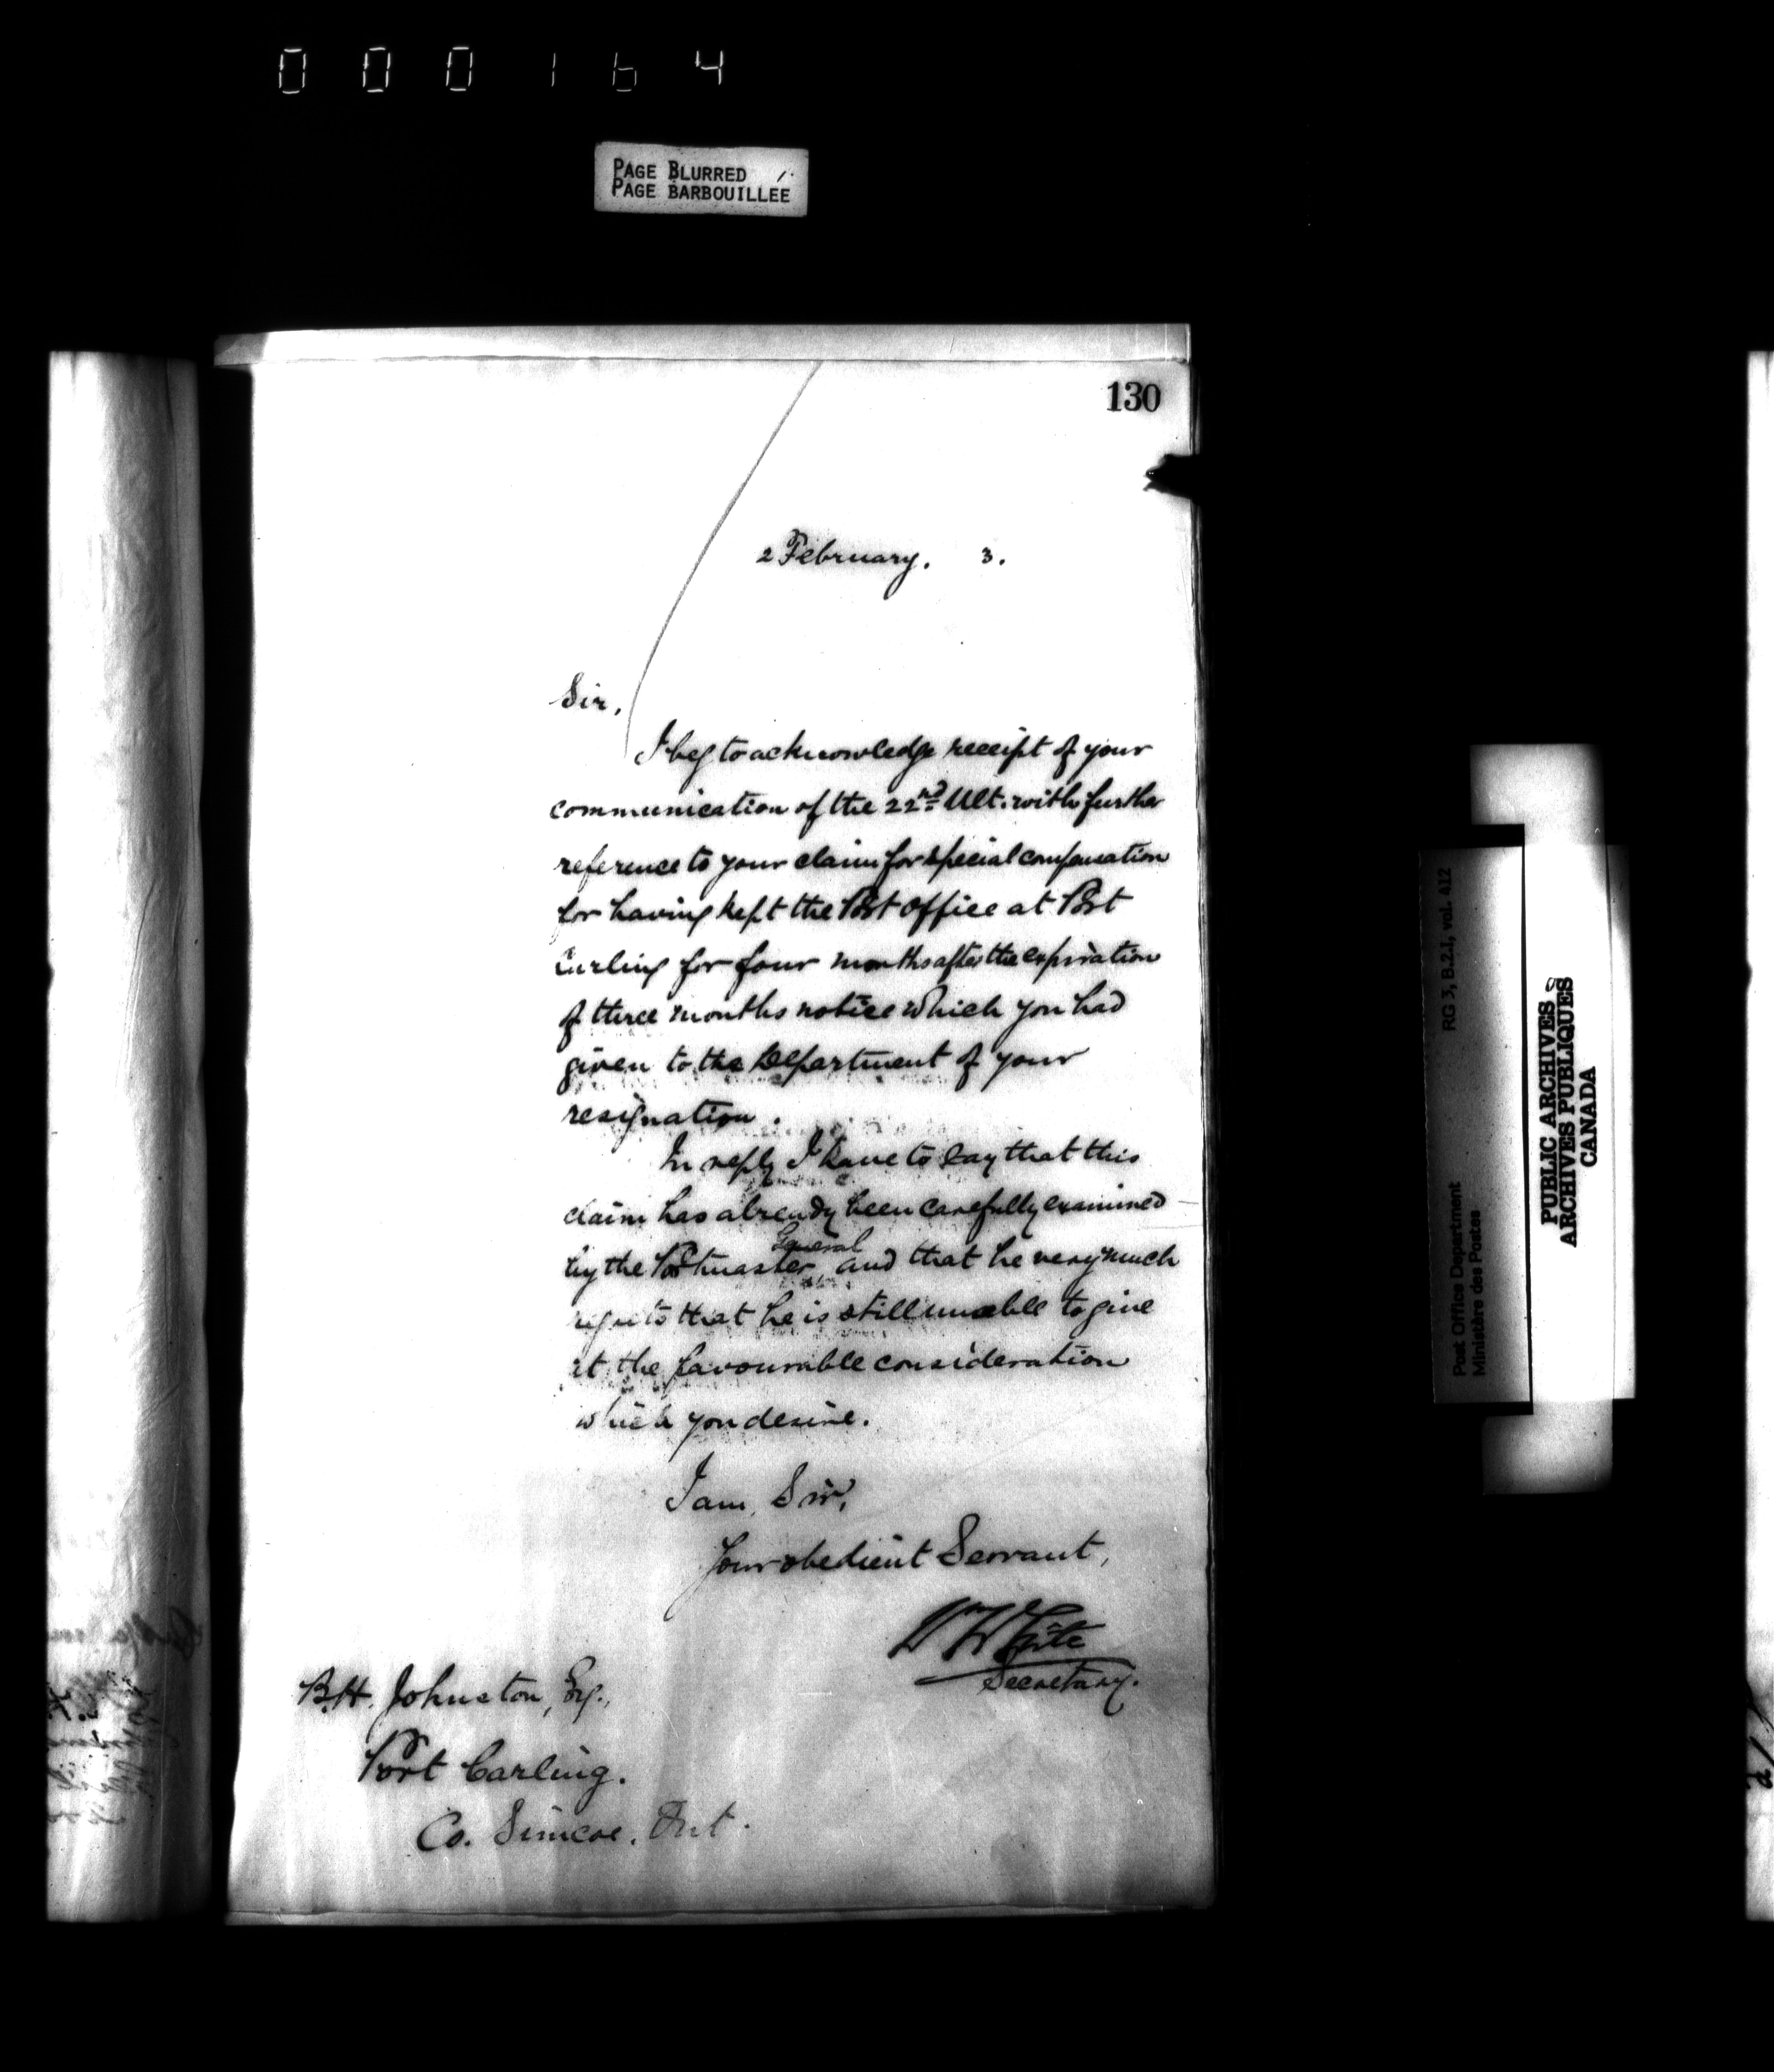 000164
PAGE BLURRED
PAGE BARBOUILLÉE
130
2 February. 3.
Sir,
I beg to acknowledge receipt of your
communication of the 22nd Ult. with further
reference to your claim for special compensation
for having kept the Post Office at Port
Carling for four months after the expiration
of three months notice which you had
given to the Department of your
resignation.
In reply I have to say that this
claim has already been carefully examined
General
by the Postmaster and that he very much
regrets that he is still unable to give
it the favourable consideration
which you desire.
I am, Sir,
Your obedient Servant,
Wm White
Secretary.
B.H. Johnston, Esq.,
Port Carling.
Co. Simcoe. Ont.
RG 3, B.2.1, vol. 412
Post Office Department
Ministère des Postes
PUBLIC ARCHIVES
ARCHIVES PUBLIQUES
CANADA